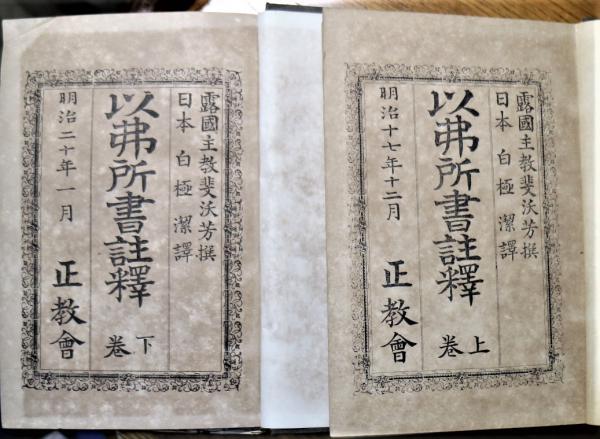 露國主教斐沃芳撰
日本 白極 潔譯
以弗所書註釋
上卷
明治十七年十二月
正教會
露國主教斐沃芳撰
日本 白極 潔譯
以弗所書註釋
下卷
明治二十年一月
正教會